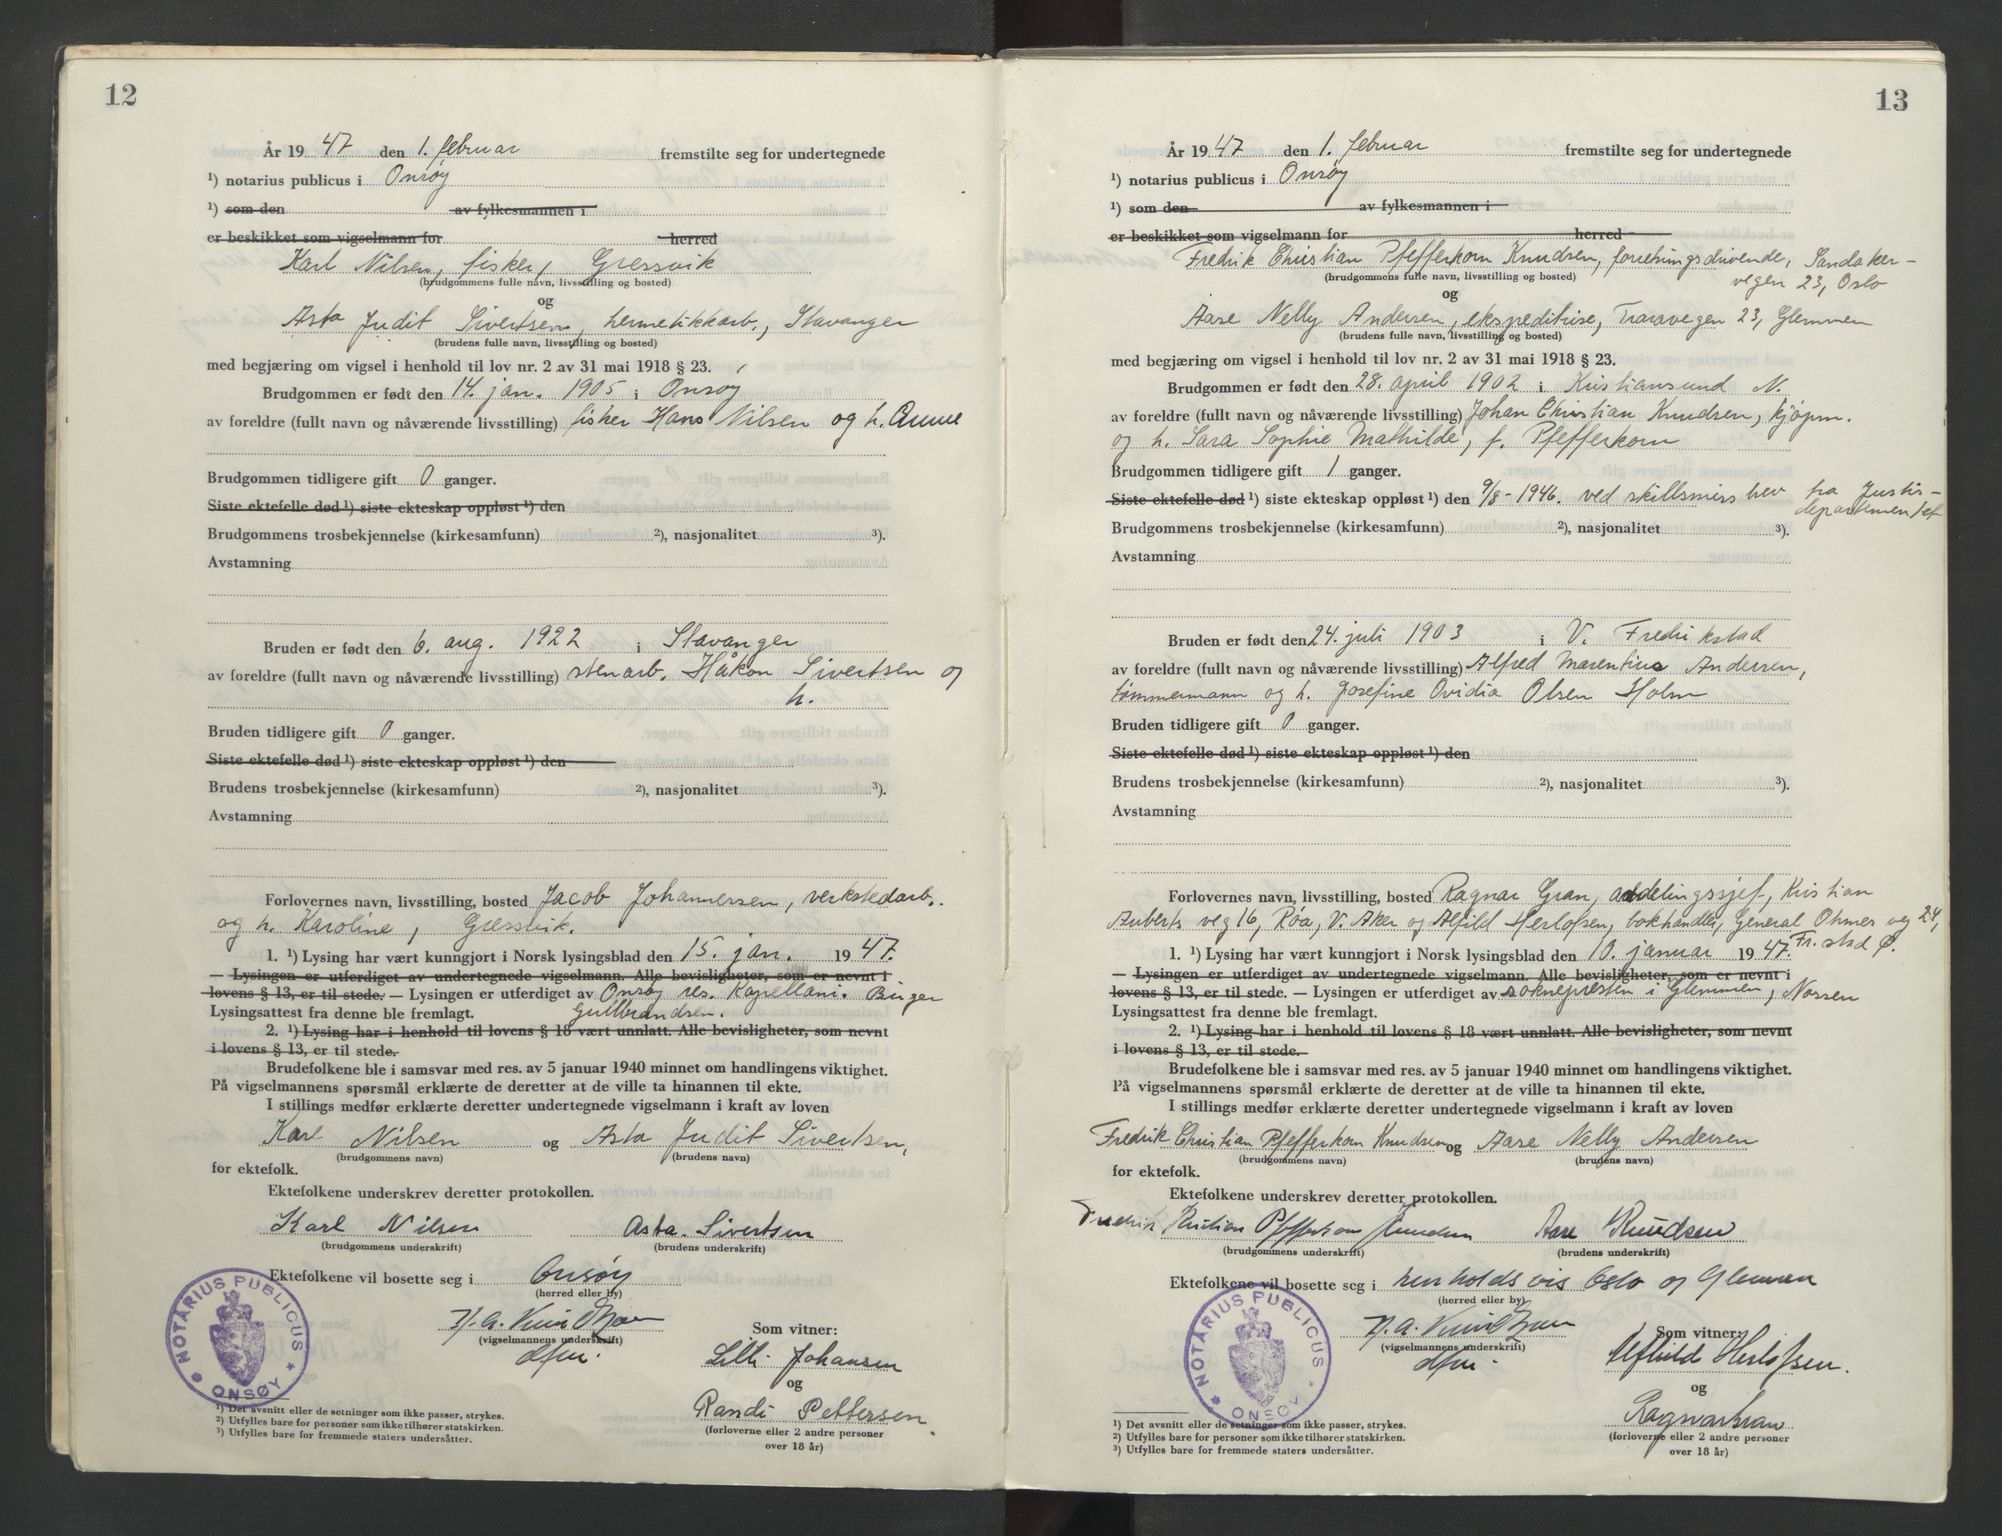 12
År 19 47 den 1. februar fremstilte seg for undertegnede
¹) notarius publicus i Onsøy
¹) som den av fylkesmannen i
er beskikket som vigselmann for herred
Karl Nilsen, fisker, Gressvik
(brudgommens fulle navn, livsstilling og bosted)
og
Asta Judit Sivertsen, hermetikkarb., Stavanger
(brudens fulle navn, livsstilling og bosted)
med begjæring om vigsel i henhold til lov nr. 2 av 31 mai 1918 § 23.
Brudgommen er født den 14. jan. 1905 i Onsøy
av foreldre (fullt navn og nåværende livsstilling) fisker Hans Nilsen og h. Anne
Brudgommen tidligere gift 0 ganger.
Siste ektefelle død ¹) siste ekteskap oppløst ¹) den
Brudgommens trosbekjennelse (kirkesamfunn) ²), nasjonalitet ³).
Avstamning
Bruden er født den 6. aug. 1922 i Stavanger
av foreldre (fullt navn og nåværende livsstilling) stenarb. Håkon Sivertsen og
h.
Bruden tidligere gift 0 ganger.
Siste ektefelle død ¹) siste ekteskap oppløst ¹) den
Brudens trosbekjennelse (kirkesamfunn) ²), nasjonalitet ³).
Avstamning
Forlovernes navn, livsstilling, bosted Jacob Johannessen, verkstedarb.
og h. Karoline, Gressvik.
1. ¹) Lysing har vært kunngjort i Norsk lysingsblad den 15. jan. 1947.
— Lysingen er utferdiget av undertegnede vigselmann. Alle bevisligheter, som er nevnt i
lovens § 13, er til stede. — Lysingen er utferdiget av Onsøy res. Kapellani. Birger
Lysingsattest fra denne ble fremlagt. Gulbrandsen.
2. ¹) Lysing har i henhold til lovens § 18 vært unnlatt. Alle bevisligheter, som nevnt
i lovens § 13, er til stede.
Brudefolkene ble i samsvar med res. av 5 januar 1940 minnet om handlingens viktighet.
På vigselmannens spørsmål erklærte de deretter at de ville ta hinannen til ekte.
I stillings medfør erklærte deretter undertegnede vigselmann i kraft av loven
Karl Nilsen og Asta Judit Sivertsen,
(brudgommens navn) (brudens navn)
for ektefolk.
Ektefolkene underskrev deretter protokollen.
Karl Nilsen Asta Sivertsen
(brudgommens underskrift) (brudens underskrift)
Ektefolkene vil bosette seg i Onsøy
(herred eller by)
H. A.
(vigselmannens underskrift) Som vitner:
Lilli Johansen
og
Randi Pettersen
(forloverne eller 2 andre personer
over 18 år)
NOTARIUS PUBLICUS
ONSØY
¹) Det avsnitt eller de setninger som ikke passer, strykes.
²) Utfylles bare for personer som ikke tilhører statskirken.
³) Utfylles bare for fremmede staters undersåtter.
13
År 19 47 den 1. februar fremstilte seg for undertegnede
¹) notarius publicus i Onsøy
¹) som den av fylkesmannen i
er beskikket som vigselmann for herred
Fredrik Christian Pfefferkorn Knudsen, forretningsdrivende, Sandaker-
vegen 23, Oslo
(brudgommens fulle navn, livsstilling og bosted)
og
Aase Nelly Andersen, ekspeditrise, Traravegen 23, Glemmen
(brudens fulle navn, livsstilling og bosted)
med begjæring om vigsel i henhold til lov nr. 2 av 31 mai 1918 § 23.
Brudgommen er født den 28. april 1902 i Kristiansund N.
av foreldre (fullt navn og nåværende livsstilling) Johan Christian Knudsen, kjøpm.
og h. Sara Sophie Mathilde, f. Pfefferkorn
Brudgommen tidligere gift 1 ganger.
Siste ektefelle død ¹) siste ekteskap oppløst ¹) den 9/8-1946. ved skilsmissbev fra Justis-
departementet
Brudgommens trosbekjennelse (kirkesamfunn) ²), nasjonalitet ³).
Avstamning
Bruden er født den 24. juli 1903 i V. Fredrikstad
av foreldre (fullt navn og nåværende livsstilling) Alfred Marentius Andersen,
tømmermann og h. Josefine Ovidia Olsen Holm
Bruden tidligere gift 0 ganger.
Siste ektefelle død ¹) siste ekteskap oppløst ¹) den
Brudens trosbekjennelse (kirkesamfunn) ²), nasjonalitet ³).
Avstamning
Forlovernes navn, livsstilling, bosted Ragnar Gran, avdelingssjef, Kristian
Auberts veg 16, Røa, V. Aker og Alfild Herlofsen, bokhandler, General Ohmes veg 24,
Fr.stad Ø.
1. ¹) Lysing har vært kunngjort i Norsk lysingsblad den 10. januar 1947.
— Lysingen er utferdiget av undertegnede vigselmann. Alle bevisligheter, som er nevnt i
lovens § 13, er til stede. — Lysingen er utferdiget av soknepresten i Glemmen, Nossen
Lysingsattest fra denne ble fremlagt.
2. ¹) Lysing har i henhold til lovens § 18 vært unnlatt. Alle bevisligheter, som nevnt
i lovens § 13, er til stede.
Brudefolkene ble i samsvar med res. av 5 januar 1940 minnet om handlingens viktighet.
På vigselmannens spørsmål erklærte de deretter at de ville ta hinannen til ekte.
I stillings medfør erklærte deretter undertegnede vigselmann i kraft av loven
Fredrik Christian Pfefferkorn Knudsen og Aase Nelly Andersen
(brudgommens navn) (brudens navn)
for ektefolk.
Ektefolkene underskrev deretter protokollen.
Fredrik Christian Pfefferkorn Knudsen Aase Knudsen
(brudgommens underskrift) (brudens underskrift)
Ektefolkene vil bosette seg i henholdsvis Oslo og Glemmen
(herred eller by)
H. A.
(vigselmannens underskrift) Som vitner:
Alfhild Herlofsen.
og
Ragnar Gran
(forloverne eller 2 andre personer
over 18 år)
NOTARIUS PUBLICUS
ONSØY
¹) Det avsnitt eller de setninger som ikke passer, strykes.
²) Utfylles bare for personer som ikke tilhører statskirken.
³) Utfylles bare for fremmede staters undersåtter.